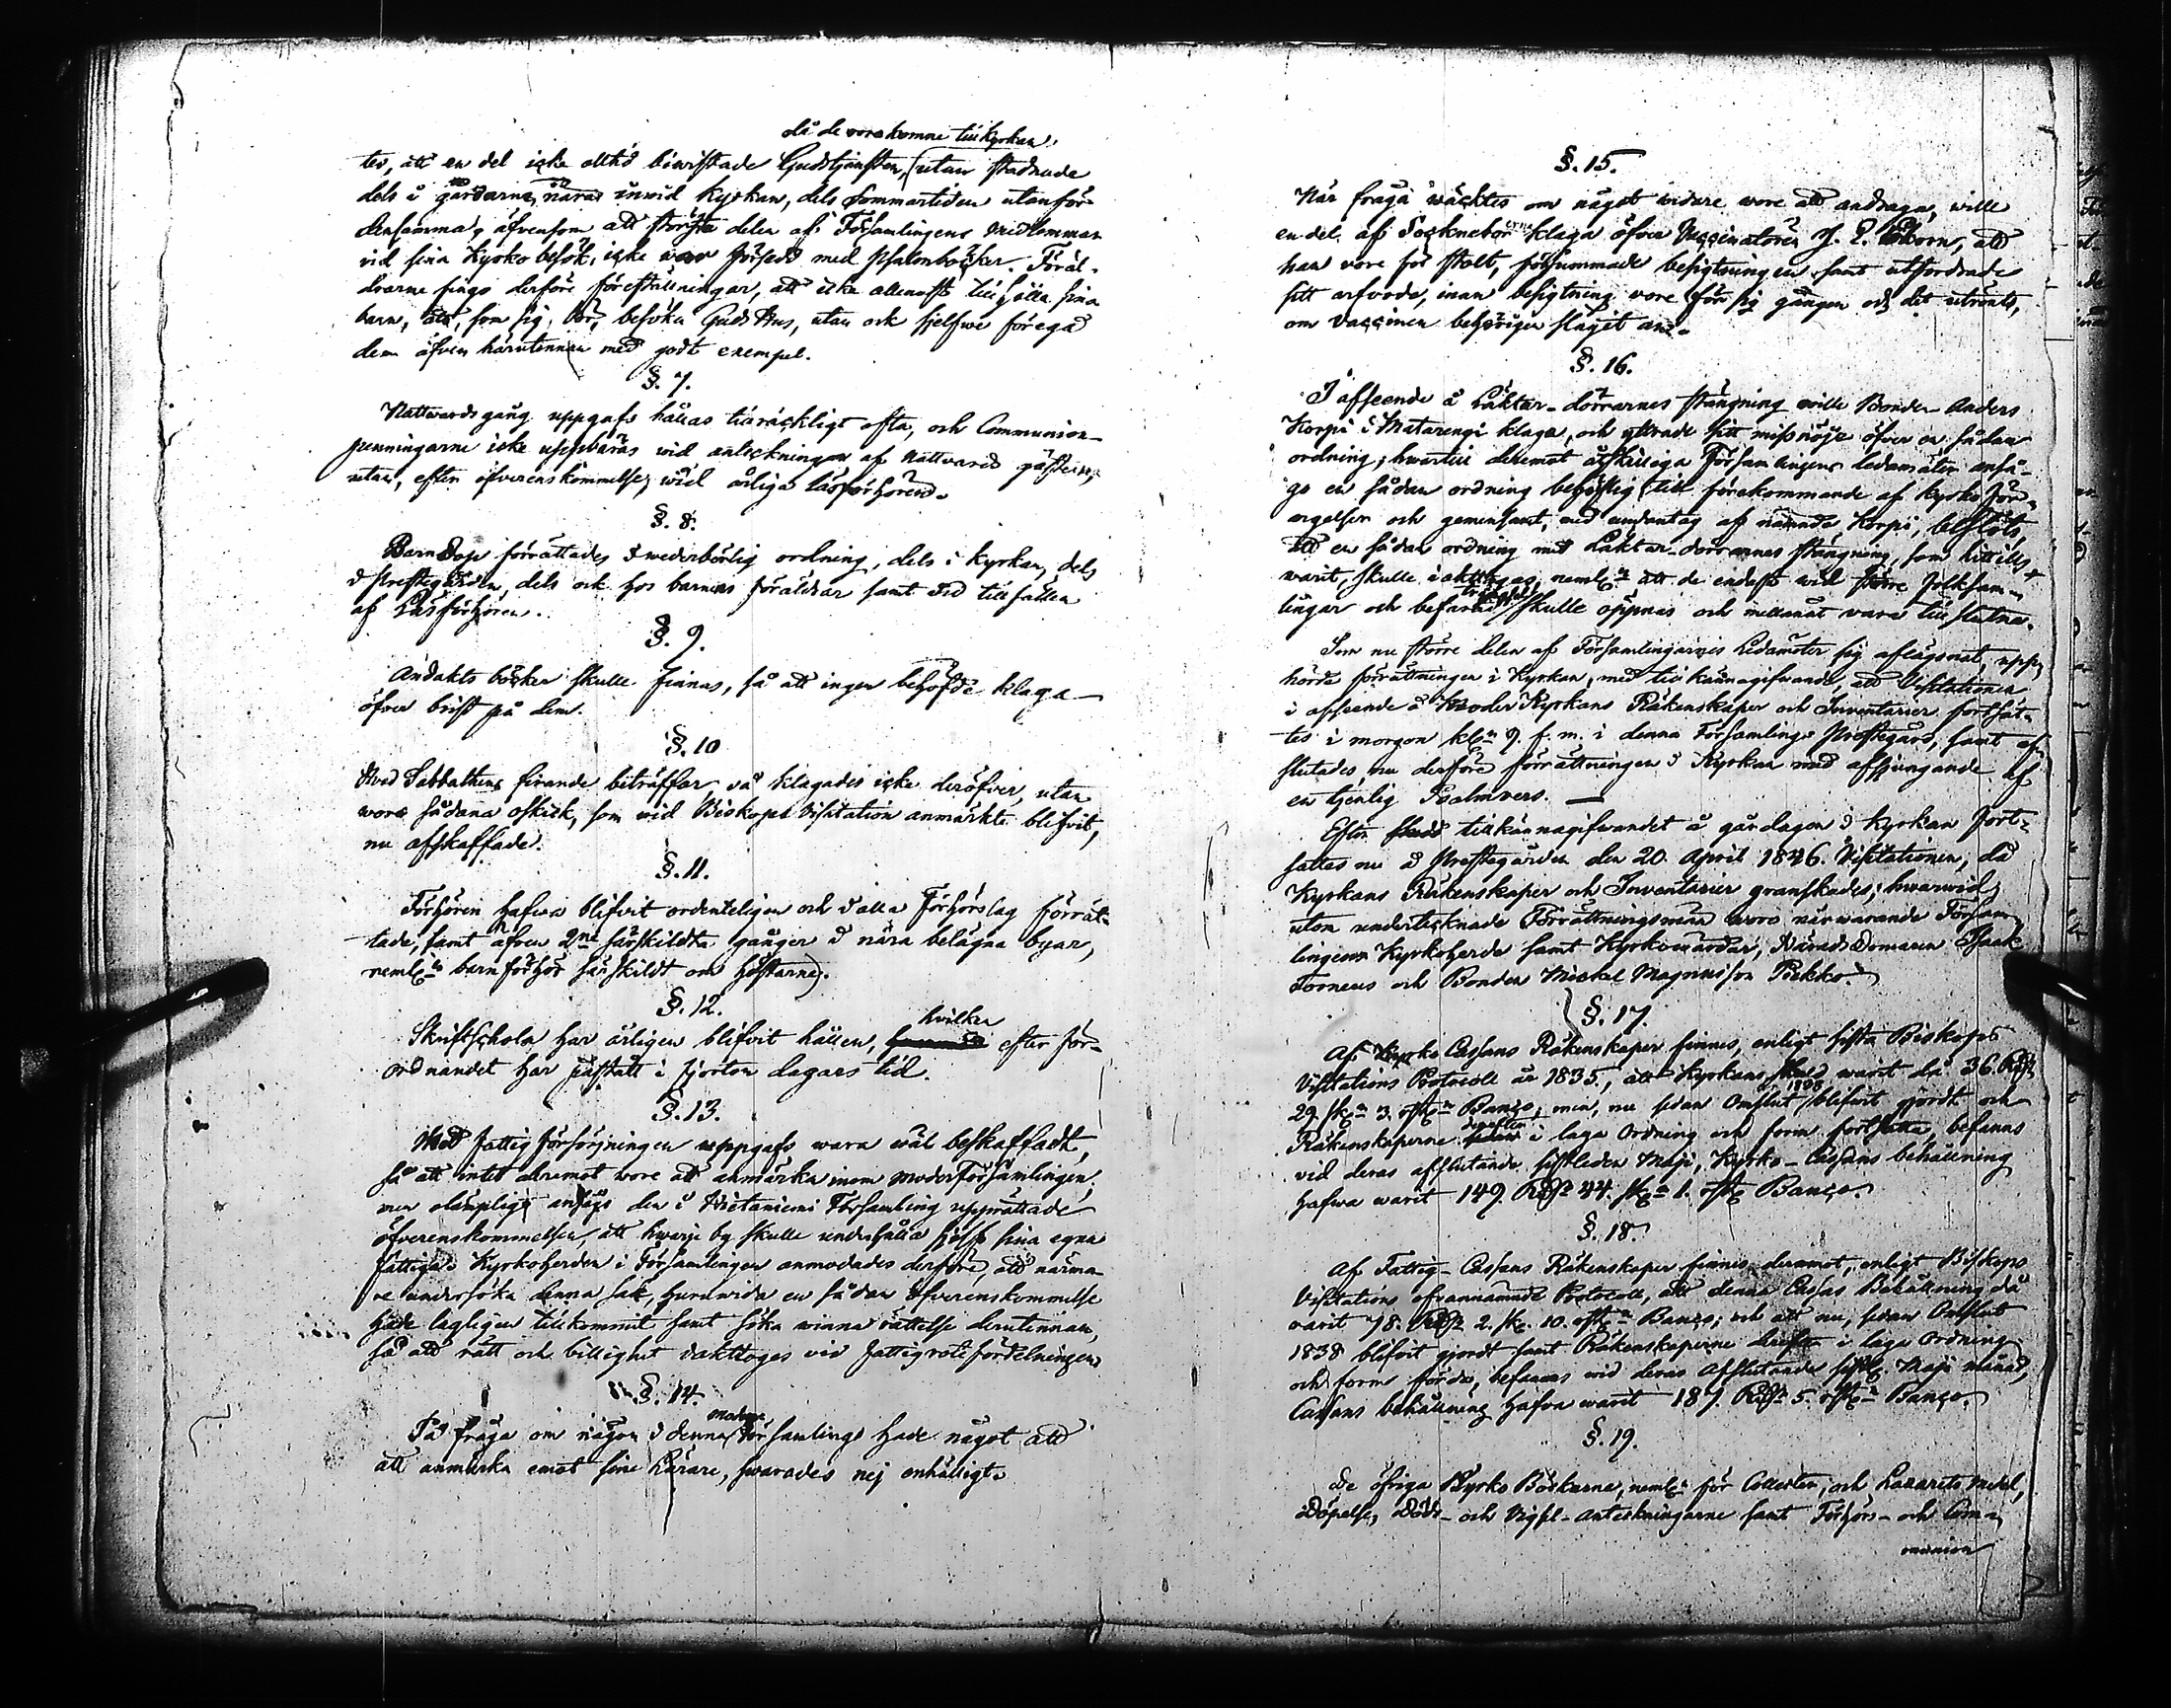 då de voro komne till Kyrkan,
tes, att en del icke alltid biwistade Gudstjensten, utan stadnade
dels i gårdarna, nära inwid Kyrkan, dels Sommartiden utanför
densamma, äfvensom att största delen af Församlingens Medlemmar
vid sina Kyrkobesök, icke woro försedd med psalmböcker. Föräl-
drarne fingo derföre föreställningar, att icke allenast tillhålla sina
barn, att, som sig bör, besöka Guds Hus, utan ock sjelfwe föregå
dem äfven härutinnan med godt exempel.
§. 7.
Nattwardsgång uppgafs hållas tillräckligt ofta, och Communion-
penningarne icke uppbäras wid anteckningen af Nattvards gästerne,
utan, efter öfverenskommelse, wid årliga Läsförhören.
§. 8.
Barndop förrättades i wederbörlig ordning, dels i Kyrkan, dels
i Prestgården, dels ock hos barnens föräldrar samt vid tillfällen
af Läsförhören.
§. 9.
Andakts böcker skulle finnas, så att ingen behöfde klaga
öfver brist på dem.
§. 10
Hvad Sabbathens firande beträffar, så klagades icke deröfver, utan
wore sådana oskick, som wid Biskops Visitation anmärkte blifvit,
nu afskaffade.
§. 11.
Förhören hafwa blifvit ordenteligen och i alla Förhörslag förrät-
tade, samt äfven 2ne särskildta gånger i nära belägna byar,
neml:n barnförhör särskildt om höstarne.
§. 12.
hvilken
Skriftschola har årligen blifvit hållen, efter för-
ordnandet har påstått i fjorton dagars tid.
§. 13.
Med Fattigförsörjningen uppgafs wara wäl beskaffadt,
så att intet deremot wore att anmärka inom Moderförsamlingen;
men olämpligt ansågs den i Hietaniemi Församling upprättade
öfverenskommelsen, att hwarje by skulle underhålla sjelf sina egna
fattiga. Kyrkoherden i Församlingen anmodades derföre, att närma-
re undersöka denna sak, huruwida en sådan öfverenskommelse
hade lagligen tillkommit samt söka winna rättelse derutinnan,
så att rätt och billighet iakttoges vid fattigrotefördelningen.
§. 14.
Moder
På fråga om någon i denna Församling hade något att
att anmärka emot sine Lärare, swarades nej enhälligt.
§. 15.
När fråga wäcktes om något widare wore att andraga, wille
en del af Socknebor klaga öfver Vaccinatoren J. E. , att
han vore för stolt, försummade besigtningen samt utfordrade
sitt arfvode, innan besigtning vore för sig gången och det utrönts,
om vaccinen behörigen slagit an.
§. 16.
I afseende å Läktar-dörrarnes stängning wille Bonden Anders
Korpi i Matarengi klaga, och yttrade sitt missnöje öfver en sådan
ordning; hwartill deremot åtskilliga Församlingens ledamöter anså-
go en sådan ordning behöflig till förekommande af Kyrkoför-
argelser och gemensamt, med undantag af nämnde Korpi, beslöts,
att en sådan ordning med Läktar-dörrarnes stängning, som hittills
warit, skulle iakttagas, neml:n att de endast wid större folksam-
lingar och befarad skulle öppnas och mellanåt vara tillslutna.
Som nu större delen af Församlingarnes Ledamöter sig aflägsnat, upp-
hörde förrättningen i Kyrkan, med tillkännagifwande, att Visitationen
i afseende å Moder Kyrkans Räkenskaper och Inventarier fortsät-
tes i morgon kl:n 9. f. m. i denna Församlings Prestegård, samt af-
slutades nu derföre förrättningen i Kyrkan med afsjungande af
en tjenlig Psalmvers.
Efter tillkännagifwandet å gårdagen i Kyrkan fort-
sattes nu å Prestegården den 20. April 1846. Visitationen, då
Kyrkans Räkenskaper och Inventarier granskades; hwarwid
utom undertecknade Förrättningsmän woro närwarande Församl-
lingens Kyrkoherde samt Kyrkowärdar, NämndeDomaren Isaak
Torneus och Bonden Mickel Magnusson Piekko.
§. 17.
Af Kyrko Cassans Räkenskaper finnes, enligt sista Biskops
Visitations Protocoll år 1835, att Kyrkans warit då 36. Rdr
29 sk:n 3. rst:n Banco; men, nu sedan Omslut 1838 blifvit gjordt och
Räkenskaperne derefter i laga Ordning och form fortsatte, befanns
vid deras afslutande sistleden Maji, Kyrko-Cassans behållning
hafwa warit 149. Rdr 44. sk:n 1. rst: Banco.
§. 18.
Af Fattig-Cassans Räkenskaper finnes deremot, enligt Biskops
Visitations ofvannämnde Protocoll, att denna Cassas Behållning då
varit 78. Rdr 2. sk. 10. rst:n Banco; och att nu, sedan Omslut
1838 blifvit gjordt samt Räkenskaperne derefter i laga Ordning
och form förda, befanns wid deras Afslutande sistl: Maji månad,
Cassans behållning hafva warit 187. Rdr 5. rst:n Banco.
§. 19.
De öfriga Kyrko Böckerne, neml:n för Collecter, och Lazaretsmedel,
Döpelse, Död- och Vigsel-Anteckningarne samt Förhörs- och Com-
munion